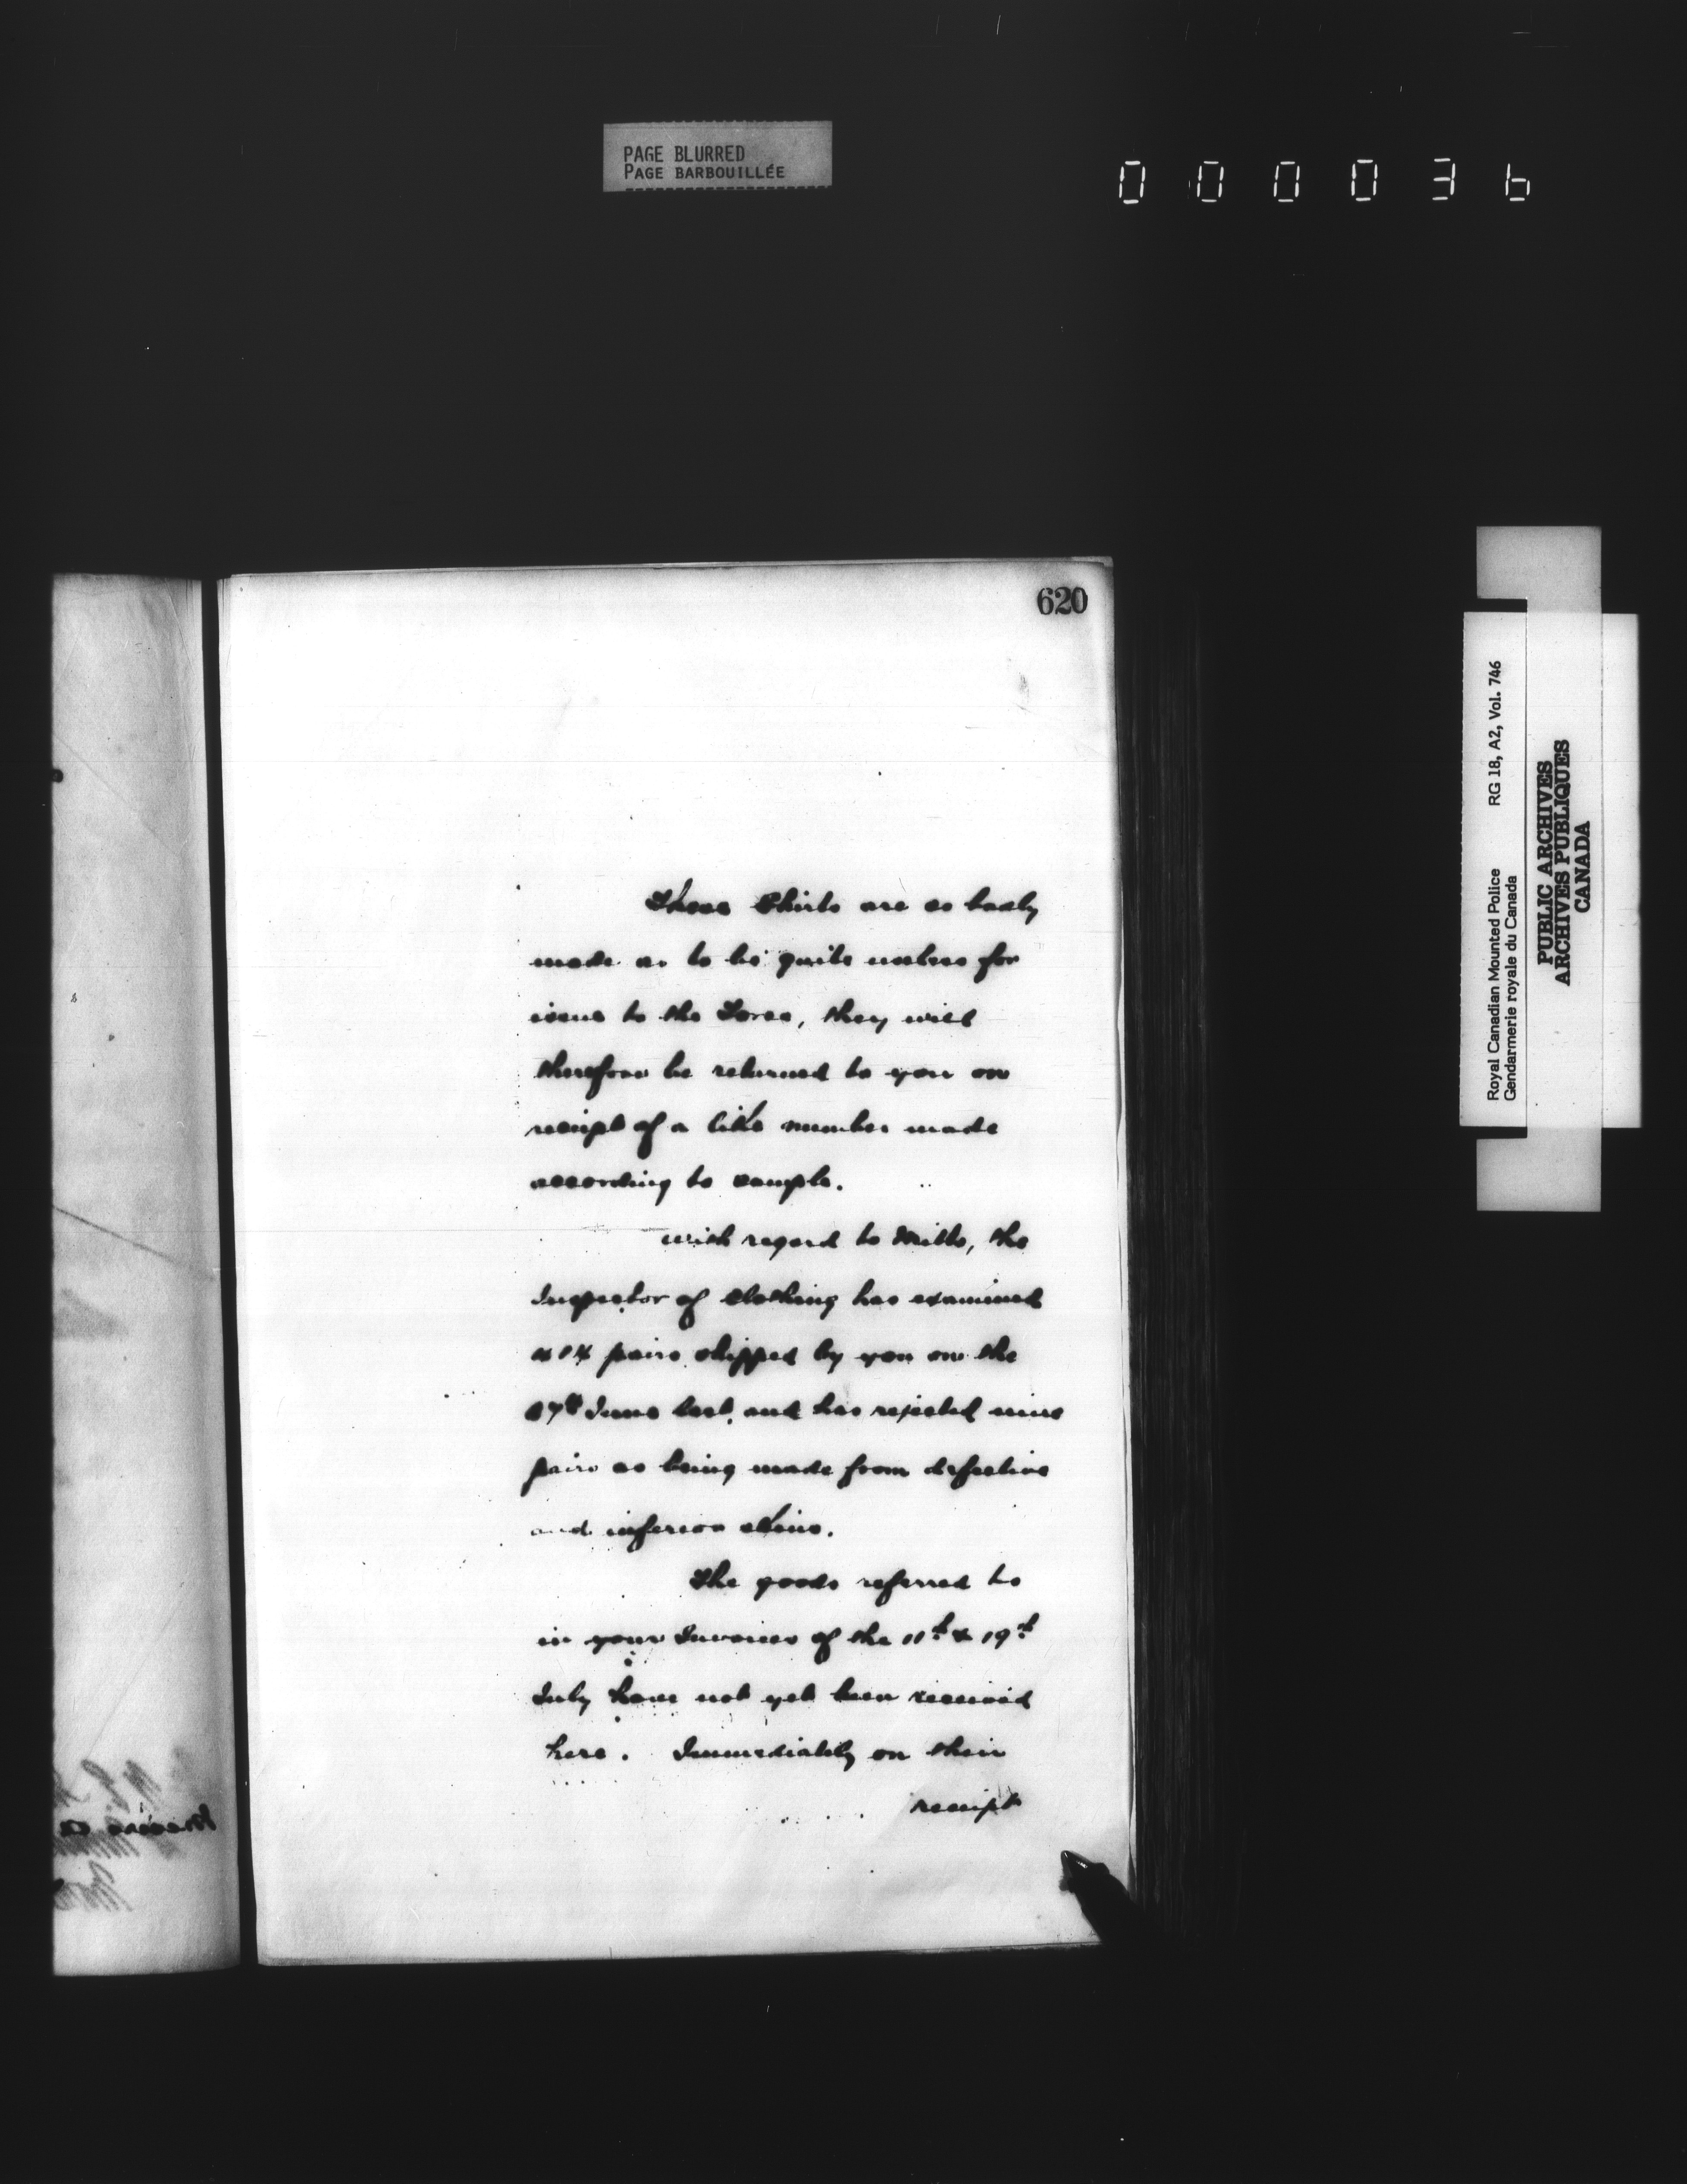 PAGE BLURRED
PAGE BARBOUILLÉE
000036
620
These Shirts are so badly
made as to be quite useless for
issue to the Force, they will
therefore be returned to you on
receipt of a like number made
according to sample.
With regard to Mitts, the
Inspector of Clothing has examined
pairs shipped by you on the
June last, and has rejected nine
pairs as being made from defective
and inferior skins.
The goods referred to
in your Invoices of the 11th & 19th
July have not yet been received
here. Immediately on their
receipt
Royal Canadian Mounted Police RG 18, A2, Vol. 746
Gendarmerie royale du Canada
PUBLIC ARCHIVES
ARCHIVES PUBLIQUES
CANADA